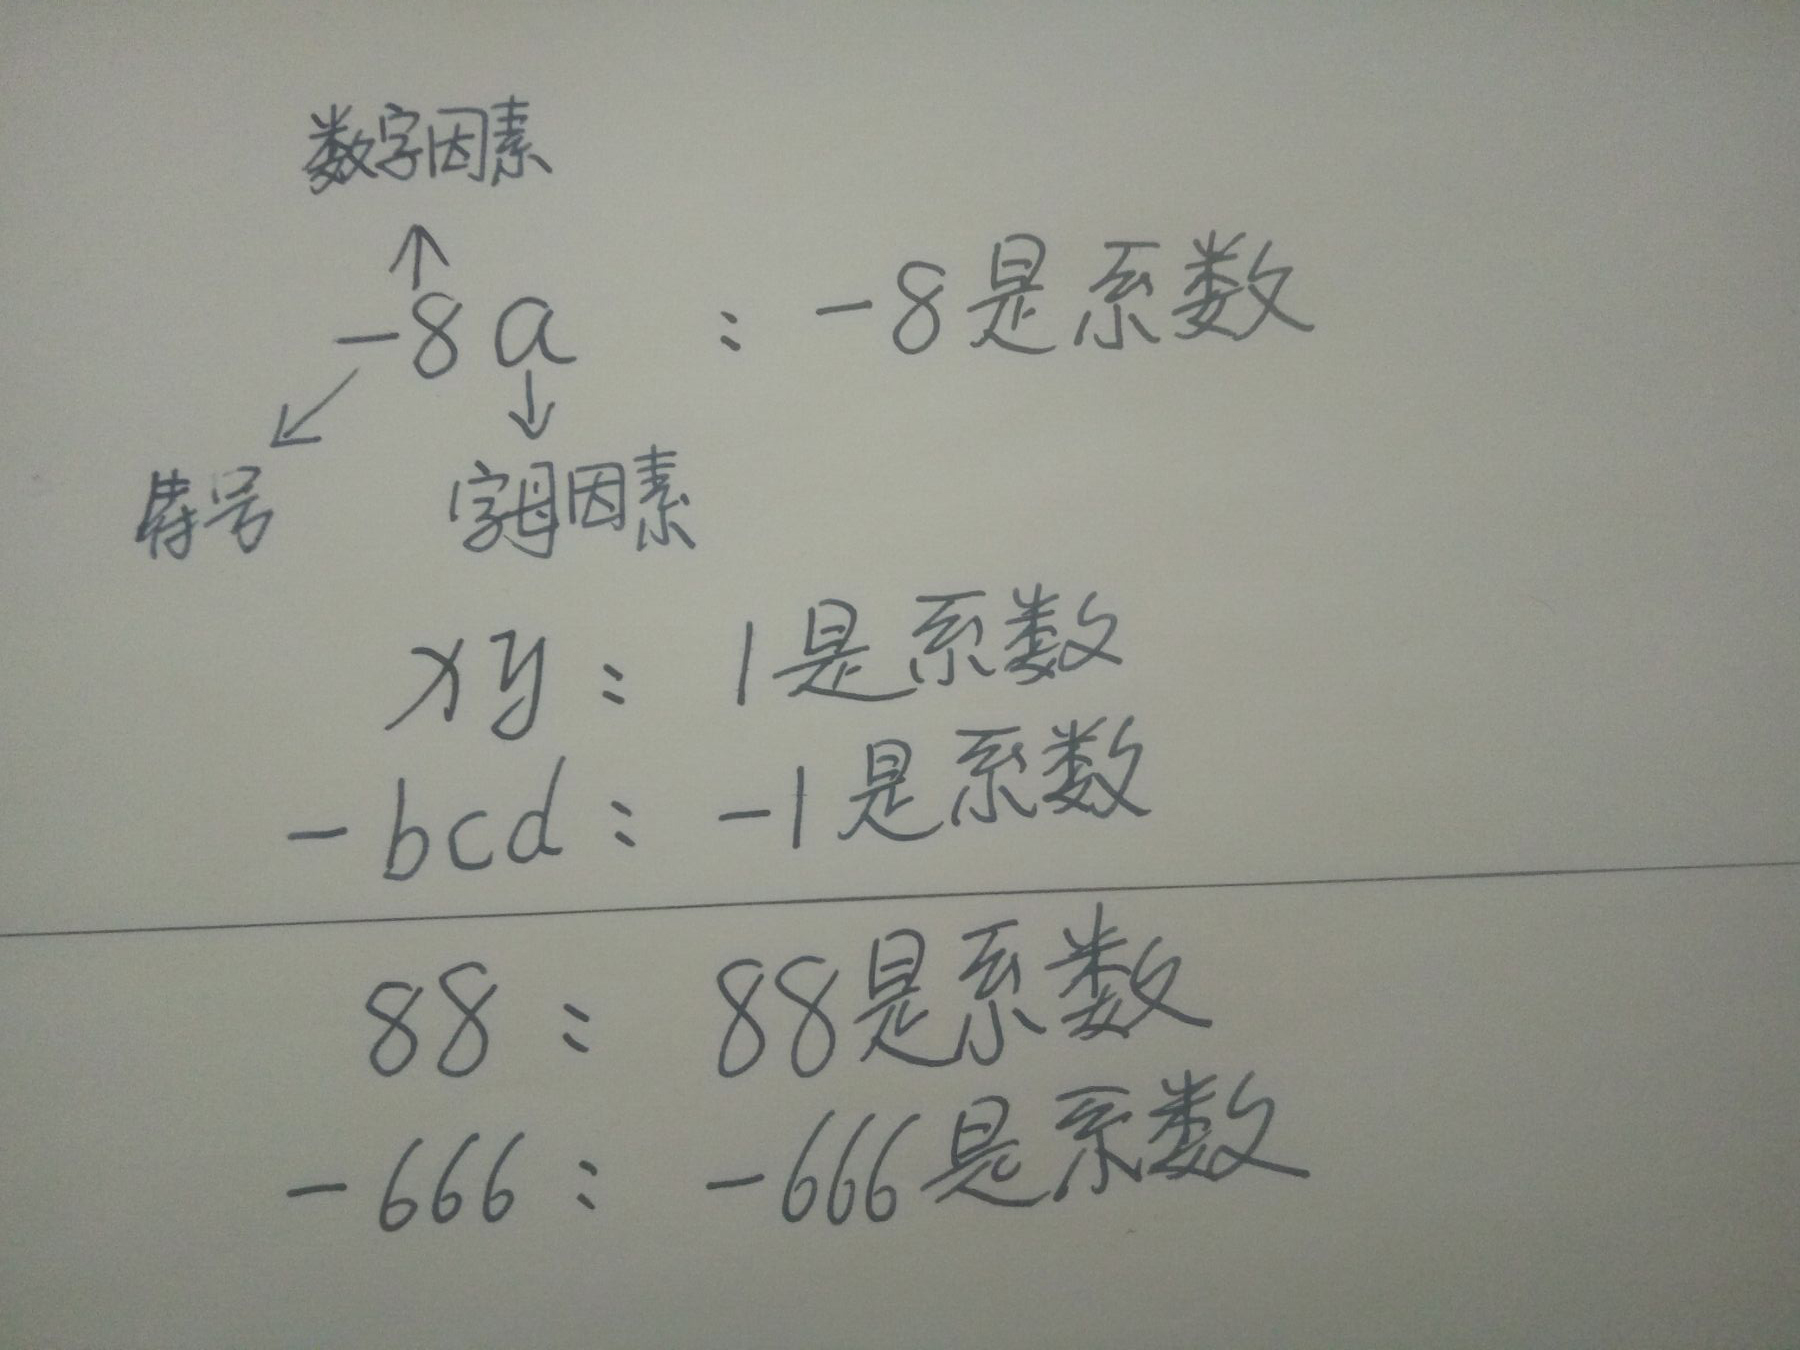 数字因素
-8a : -8是系数
符号 字母因素
xy : 1是系数
-bcd : -1是系数
88 : 88是系数
-666 : -666是系数